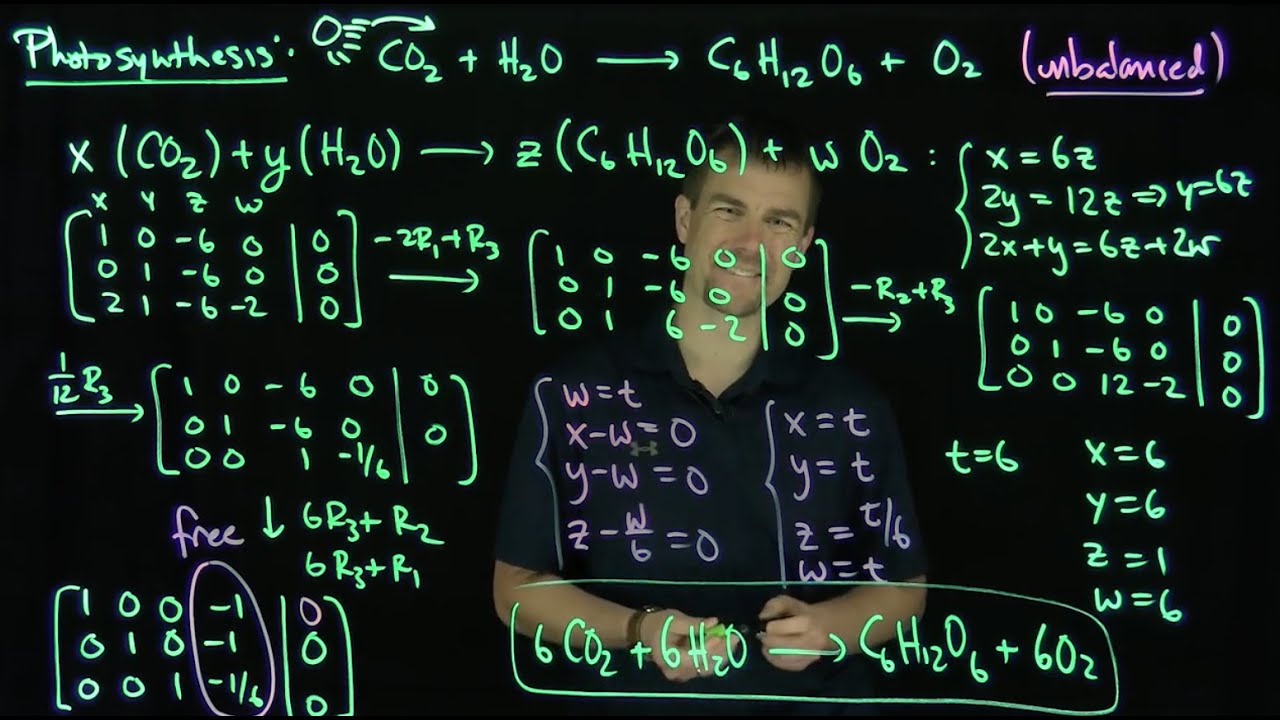 Photosynthesis: CO₂ + H₂O ⟶ C₆H₁₂O₆ + O₂ (unbalanced)
x (CO₂) + y (H₂O) ⟶ z (C₆H₁₂O₆) + w O₂ :
x = 6z
2y = 12z ⇒ y=6z
2x+y = 6z+2w
x y z w
1 0 -6 0 | 0
0 1 -6 0 | 0
2 1 -6 -2 | 0
-2R₁+R₃
⟶
1 0 -6 0 | 0
0 1 -6 0 | 0
0 1 6 -2 | 0
-R₂+R₃
⟶
1 0 -6 0 | 0
0 1 -6 0 | 0
0 0 12 -2 | 0
1/12 R₃
⟶
1 0 -6 0 | 0
0 1 -6 0 | 0
0 0 1 -1/6 |
free ↓ 6R₃+R₂
6R₃+R₁
1 0 0 -1 | 0
0 1 0 -1 | 0
0 0 1 -1/6 | 0
w=t
x-w=0
y-w=0
z-w/6=0
x=t
y=t
z=t/6
w=t
t=6
x=6
y=6
z=1
w=6
6CO₂ + 6H₂O ⟶ C₆H₁₂O₆ + 6O₂